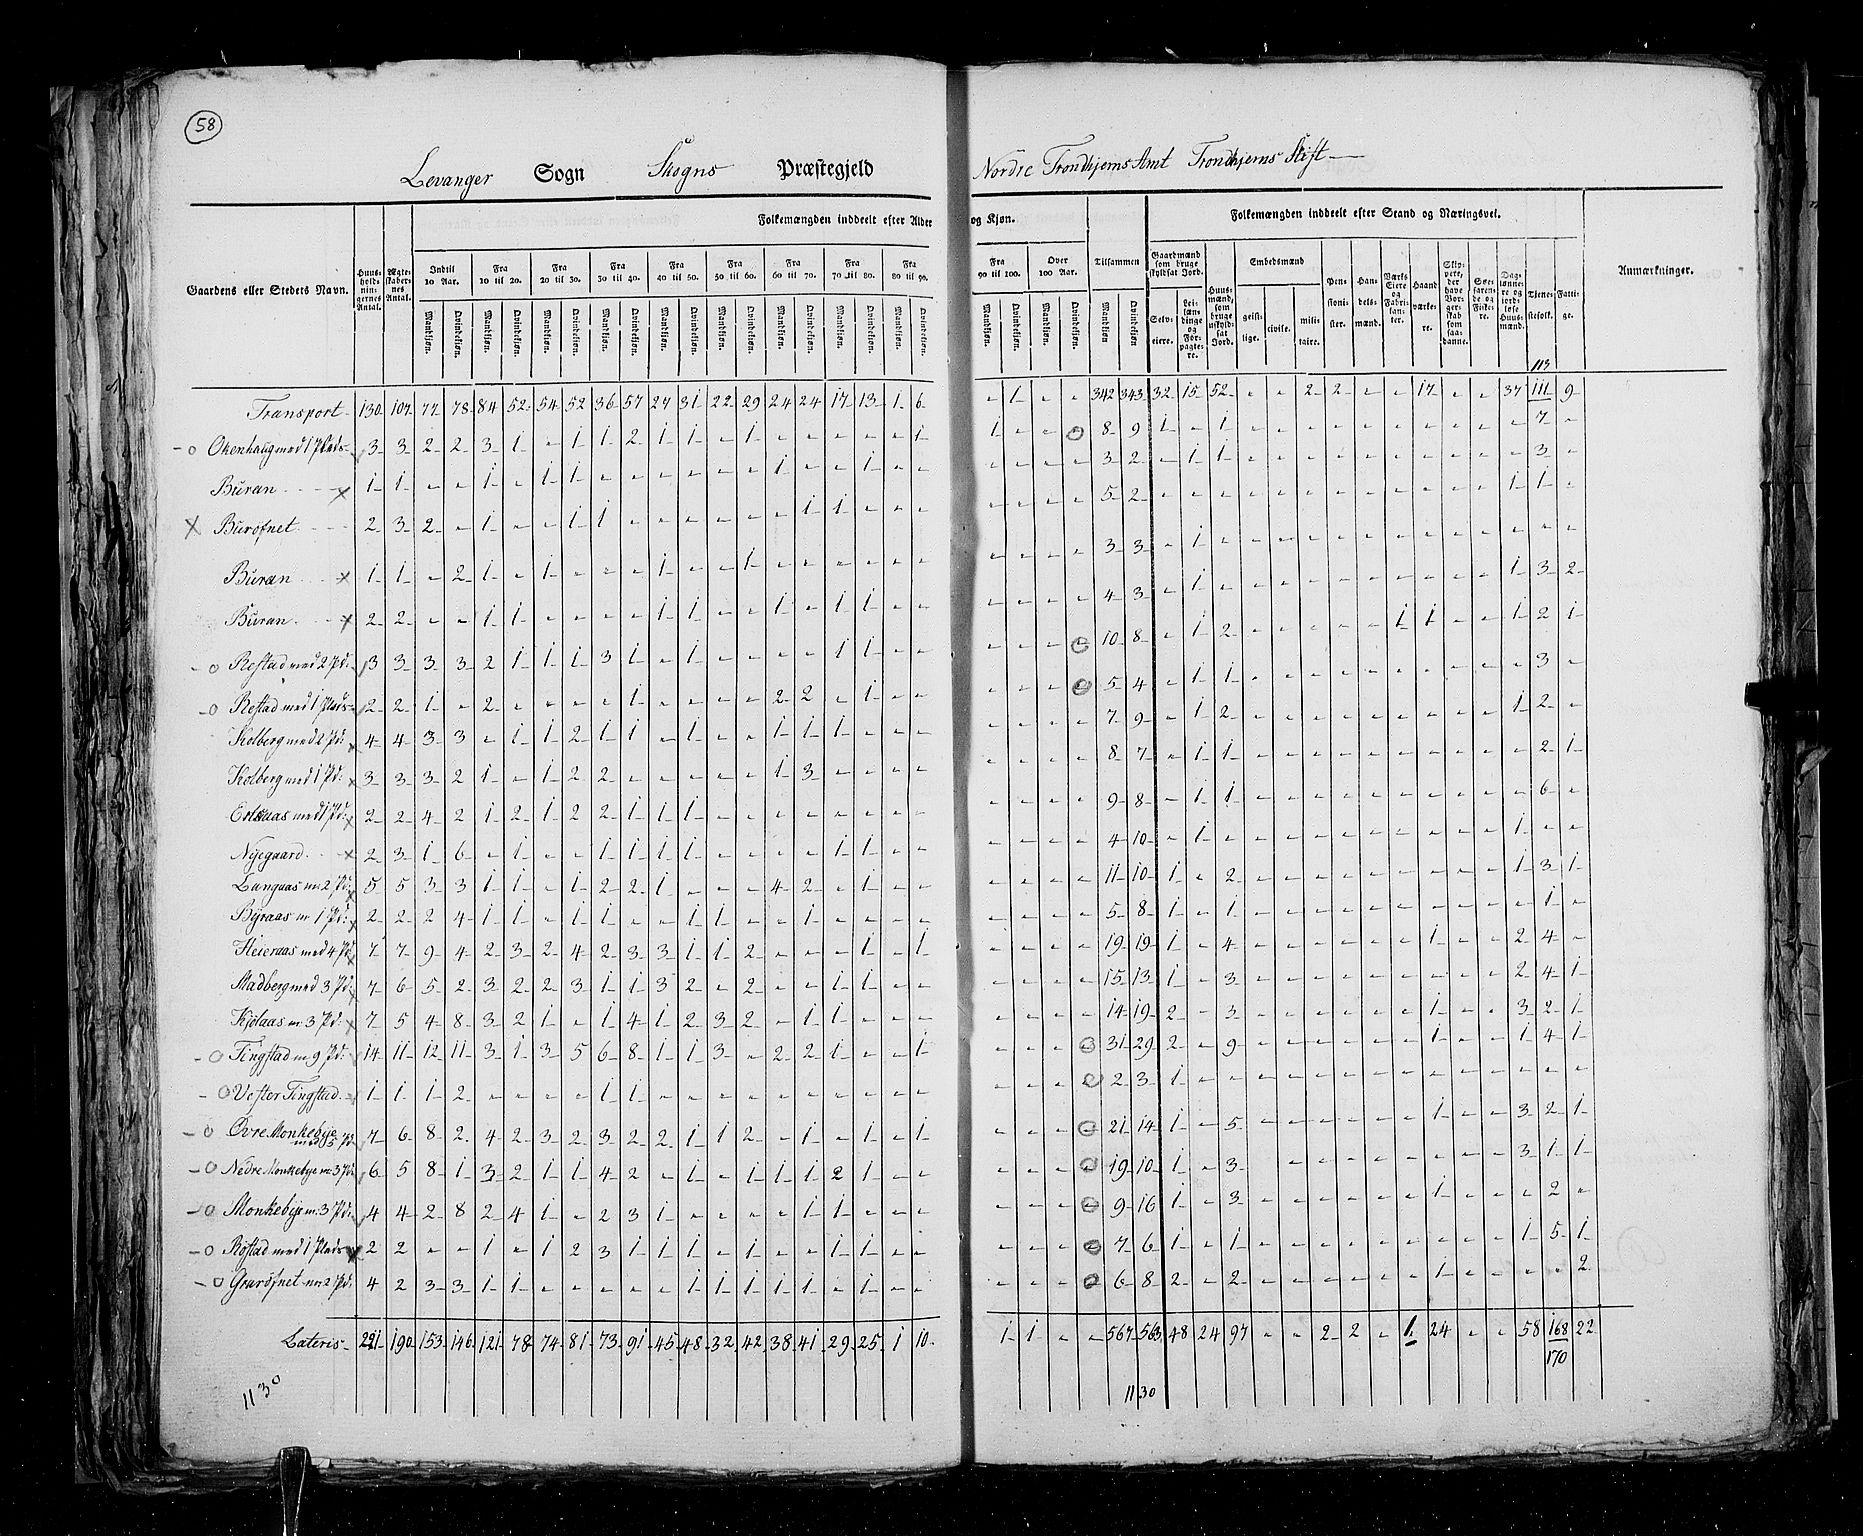 58
Levanger Sogn Skogns Præstegjeld Nordre Trondhjems Amt Trondhjems Stift
Folkemængden inddeelt efter Alder og Kjøn.
Folkemængden inddeelt efter Stand og Næringsvei.
Gaardens eller Stedets Navn.
Huusholdningernes Antal.
Ægteskabernes Antal.
Indtil 10 Aar.
Fra 10 til 20.
Fra 20 til 30.
Fra 30 til 40.
Fra 40 til 50.
Fra 50 til 60.
Fra 60 til 70.
Fra 70 til 80.
Fra 80 til 90.
Fra 90 til 100.
Over 100 Aar.
Tilsammen
Mandkjøn. Qvindekjøn.
Gaardmænd som bruge skyldsat Jord.
Selveiere.
Leilændinge og Forpagtere.
Huusmænd, som bruge uskyldsat Jord.
Embedsmænd
geistlige. civile. militaire.
Pensionister.
Handelsmænd.
Værks Eiere og Fabrikanter.
Haandværkere.
Skippere, der have Borgerskab som saadanne.
Søefarende og Fiskere.
Daglønnere og jordløse Huusmænd.
Tjenestefolk.
Fattige.
Anmærkninger.
113
Transport 130 107 77 78 84 52 54 52 36 57 27 31 22 29 24 24 17 13 1 6 - 1 - - 342 343 32 15 52 - - 2 2 - - 17 - - 37 111 9
Okenhaug med 1 Plads 3 3 2 2 3 1 - 1 1 2 1 1 - 1 - - - - - 1 1 - - 8 9 1 - 1 - - - - - - - - - - 7 -
Buran 1 1 - - 1 - 1 1 - - - - - - 1 - - 1 - - - - - - 3 2 - 1 1 - - - - - - - - - - 3 -
Burofnet 2 3 2 - 1 - - 1 1 - - - - - - 1 1 - - - - - - - 5 2 - - - - - - - - - - - - 1 1 -
Buran 1 1 - 2 1 - 1 - - - 1 - - 1 - - - - - - - - - - 3 3 - 1 - - - - - - - - - - - - -
Buran 2 2 - - 1 1 - - - - 1 1 - - 1 - 1 1 - - - - - - 4 3 - 1 - - - - - - - - - - 1 3 2
Restad med 2 Pd: 3 3 3 3 2 1 1 1 3 1 - 1 - - - - 1 1 - - - - - 10 8 - 1 2 - - - - - 1 1 - - 1 2 1
Restad med 1 Plads 2 2 1 - 2 - - - - 1 - - - - 2 2 - 1 - - - - - 5 4 - 1 1 - - - - - - - - - - 3 -
Kolberg med 2 Pd: 4 4 3 3 - 1 1 2 1 1 - 1 - - 1 1 1 - - - - - - - 7 9 - 1 2 - - - - - - - - - 1 2 -
Kolberg med 1 Pd: 3 3 3 2 1 - 1 2 2 - - - - - 1 3 - - - - - - - - 8 7 - 1 1 - - - - - - - - - - 2 1
2 2 4 2 1 2 1 2 2 1 1 1 - - - - - - - - - - - - 9 8 - 1 1 - - - - - - - - - - 6 -
Nyegaard 2 3 1 6 - 1 - - 1 1 1 1 - - - - 1 1 - - - - - - 4 10 - 1 - - - - - - - - - - 1 - -
Langaas m: 2 Pd: 5 5 3 3 1 1 - 1 2 2 1 - - - 4 2 - 1 - - - - - - 11 10 1 - 2 - - - - - - - - - 1 3 1
Byraas m 1 Pd: 2 2 2 4 1 1 - 1 1 - - 1 1 - - 1 - - - - - - - - 5 8 1 - 1 - - - - - - - - - - 1 -
Heieraas med 4 Pd 7 7 9 4 2 3 2 4 2 3 3 1 1 2 - - - 1 - 1 - - - - 19 19 1 - 4 - - - - - - 1 - - 2 4 -
Stadberg med 3 Pd: 7 6 5 2 3 2 2 3 1 1 3 2 - 2 - - 1 1 - - - - - - 15 13 1 - 3 - - - - - - - - - 2 4 1
Kjølaas m: 3 Pd: 7 5 4 8 3 2 1 - 1 4 1 2 3 2 - 1 1 - - - - - - - 14 19 2 - 3 - - - - - - 1 - - 3 2 1
Tingstad m: 9 Pd: 14 11 12 11 3 1 3 5 6 8 1 1 3 - 2 2 1 - - 1 - - - 31 29 2 - 9 - - - - - - 1 - - 1 4 1
Vester Tingstad 1 1 1 2 - - - - 1 1 - - - - - - - - - - - - - 2 3 1 - - - - - - - - - - - - - -
Øvre Monkebye med 5 Pd 7 6 8 2 4 2 3 2 3 2 2 1 1 2 - 1 - 1 - 1 - - - 21 14 1 - 5 - - - - - - 1 - - 3 2 1
Nedre Monkebye m: 3 Pd: 6 5 8 1 3 2 1 1 4 2 - 1 - 1 1 1 2 1 - - - - - 19 10 1 - 3 - - - - - - - - 3 1 1
Monkebye m: 3 Pd: 4 4 2 8 2 4 1 - 2 3 1 - - - - 1 1 - - - - - - 9 16 1 - 3 - - - - - - 1 - - - 2 -
Røstad med 1 Plads 2 2 - - 1 - 1 2 3 1 1 1 - 1 - - 1 1 - - - - - 7 6 1 - 1 - - - - - - - - - 1 5 1
Grarofnet m: 2 Pd. 4 2 3 3 1 1 - - - - - 1 1 1 1 1 - 1 - - - - - 6 8 2 - 2 - - - - - - 1 - - - - 2
Lateris 221 190 153 146 121 78 74 81 73 91 45 48 32 42 38 41 29 25 1 10 1 1 - - 567 563 48 24 97 - - 2 2 - 1 24 - - 58 168 22
170
1130
1130